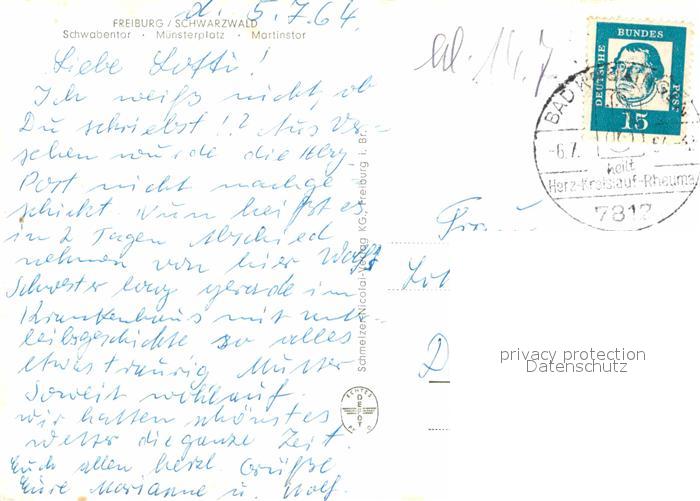 d. 5.7.64.
FREIBURG / SCHWARZWALD
Schwabentor · Münsterplatz · Martinstor
Liebe Lotti!
Ich weiß nicht, ob
Du schriebst!? Aus Ver-
sehen wurde die
Post nicht nachge-
schickt. Nun heißt es
in 2 Tagen Abschied
nehmen von hier Wolfs
Schwester lag gerade im
Krankenhaus mit unter-
leibsgeschichte so alles
etwas traurig Mutter
soweit wohlauf.
wir hatten schönstes
wetter die ganze Zeit.
Euch allen herzl. Grüße
Eure Marianne u. Wolf.
Schmelzer-Nicolai-Verlag KG., Freiburg i. Br.
ECHTES
FOTO
DEUTSCHE BUNDESPOST
15
BAD
-6.7.
heilt
Herz-Kreislauf-Rheuma
7812
14.7
Frau
privacy protection
Datenschutz